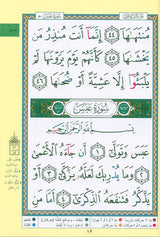 مُنتَهَىٰهَآ ﴿٤٤﴾ إِنَّمَآ أَنتَ مُنذِرُ مَن
يَخْشَىٰهَا ﴿٤٥﴾ كَأَنَّهُمْ يَوْمَ يَرَوْنَهَا لَمْ
يَلْبَثُوٓا۟ إِلَّا عَشِيَّةً أَوْ ضُحَىٰهَا ﴿٤٦﴾
سُورَةُ عَبَسَ
بِسْمِ ٱللَّهِ ٱلرَّحْمَٰنِ ٱلرَّحِيمِ
عَبَسَ وَتَوَلَّىٰٓ ﴿١﴾ أَن جَآءَهُ ٱلْأَعْمَىٰ
﴿٢﴾ وَمَا يُدْرِيكَ لَعَلَّهُۥ يَزَّكَّىٰٓ ﴿٣﴾ أَوْ
يَذَّكَّرُ فَتَنفَعَهُ ٱلذِّكْرَىٰٓ ﴿٤﴾ أَمَّا مَنِ